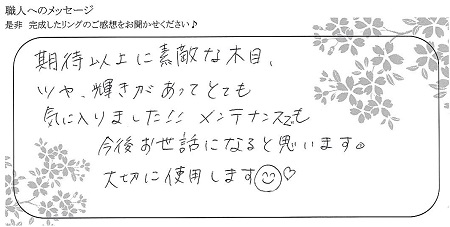 職人へのメッセージ
是非 完成したリングのご感想をお聞かせください♪
期待以上に素敵な木目、
ツヤ、輝きがあってとても
気に入りました!! メンテナンスでも
今後お世話になると思います。
大切に使用します☺♡